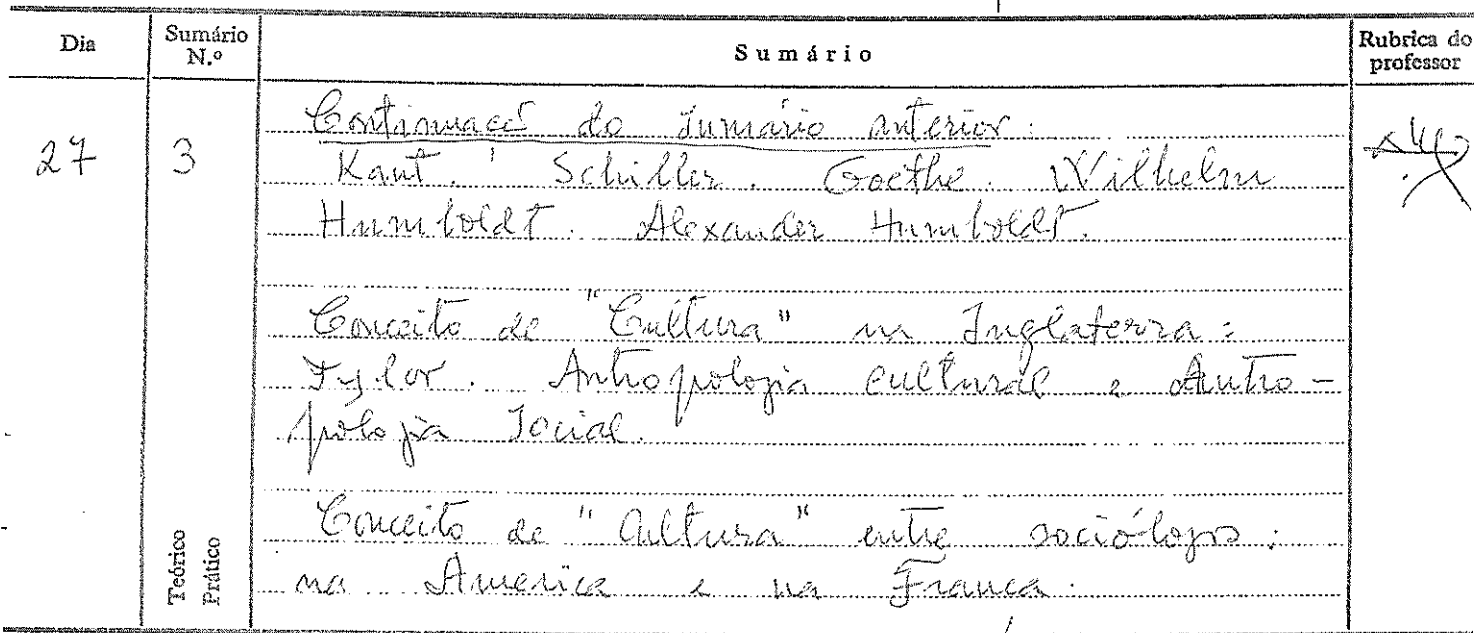 Dia
Sumário N.º
Sumário
Rubrica do professor
27
3
Continuação do Sumário anterior:
Kant. Schiller. Goethe. Wilhelm
Humboldt. Alexander Humboldt.
Conceito de "Cultura" na Inglaterra:
Tylor. Antropologia cultural e Antro-
pologia Social.
Conceito de "Cultura" entre sociólogos:
na America e na França.
Teórico
Prático